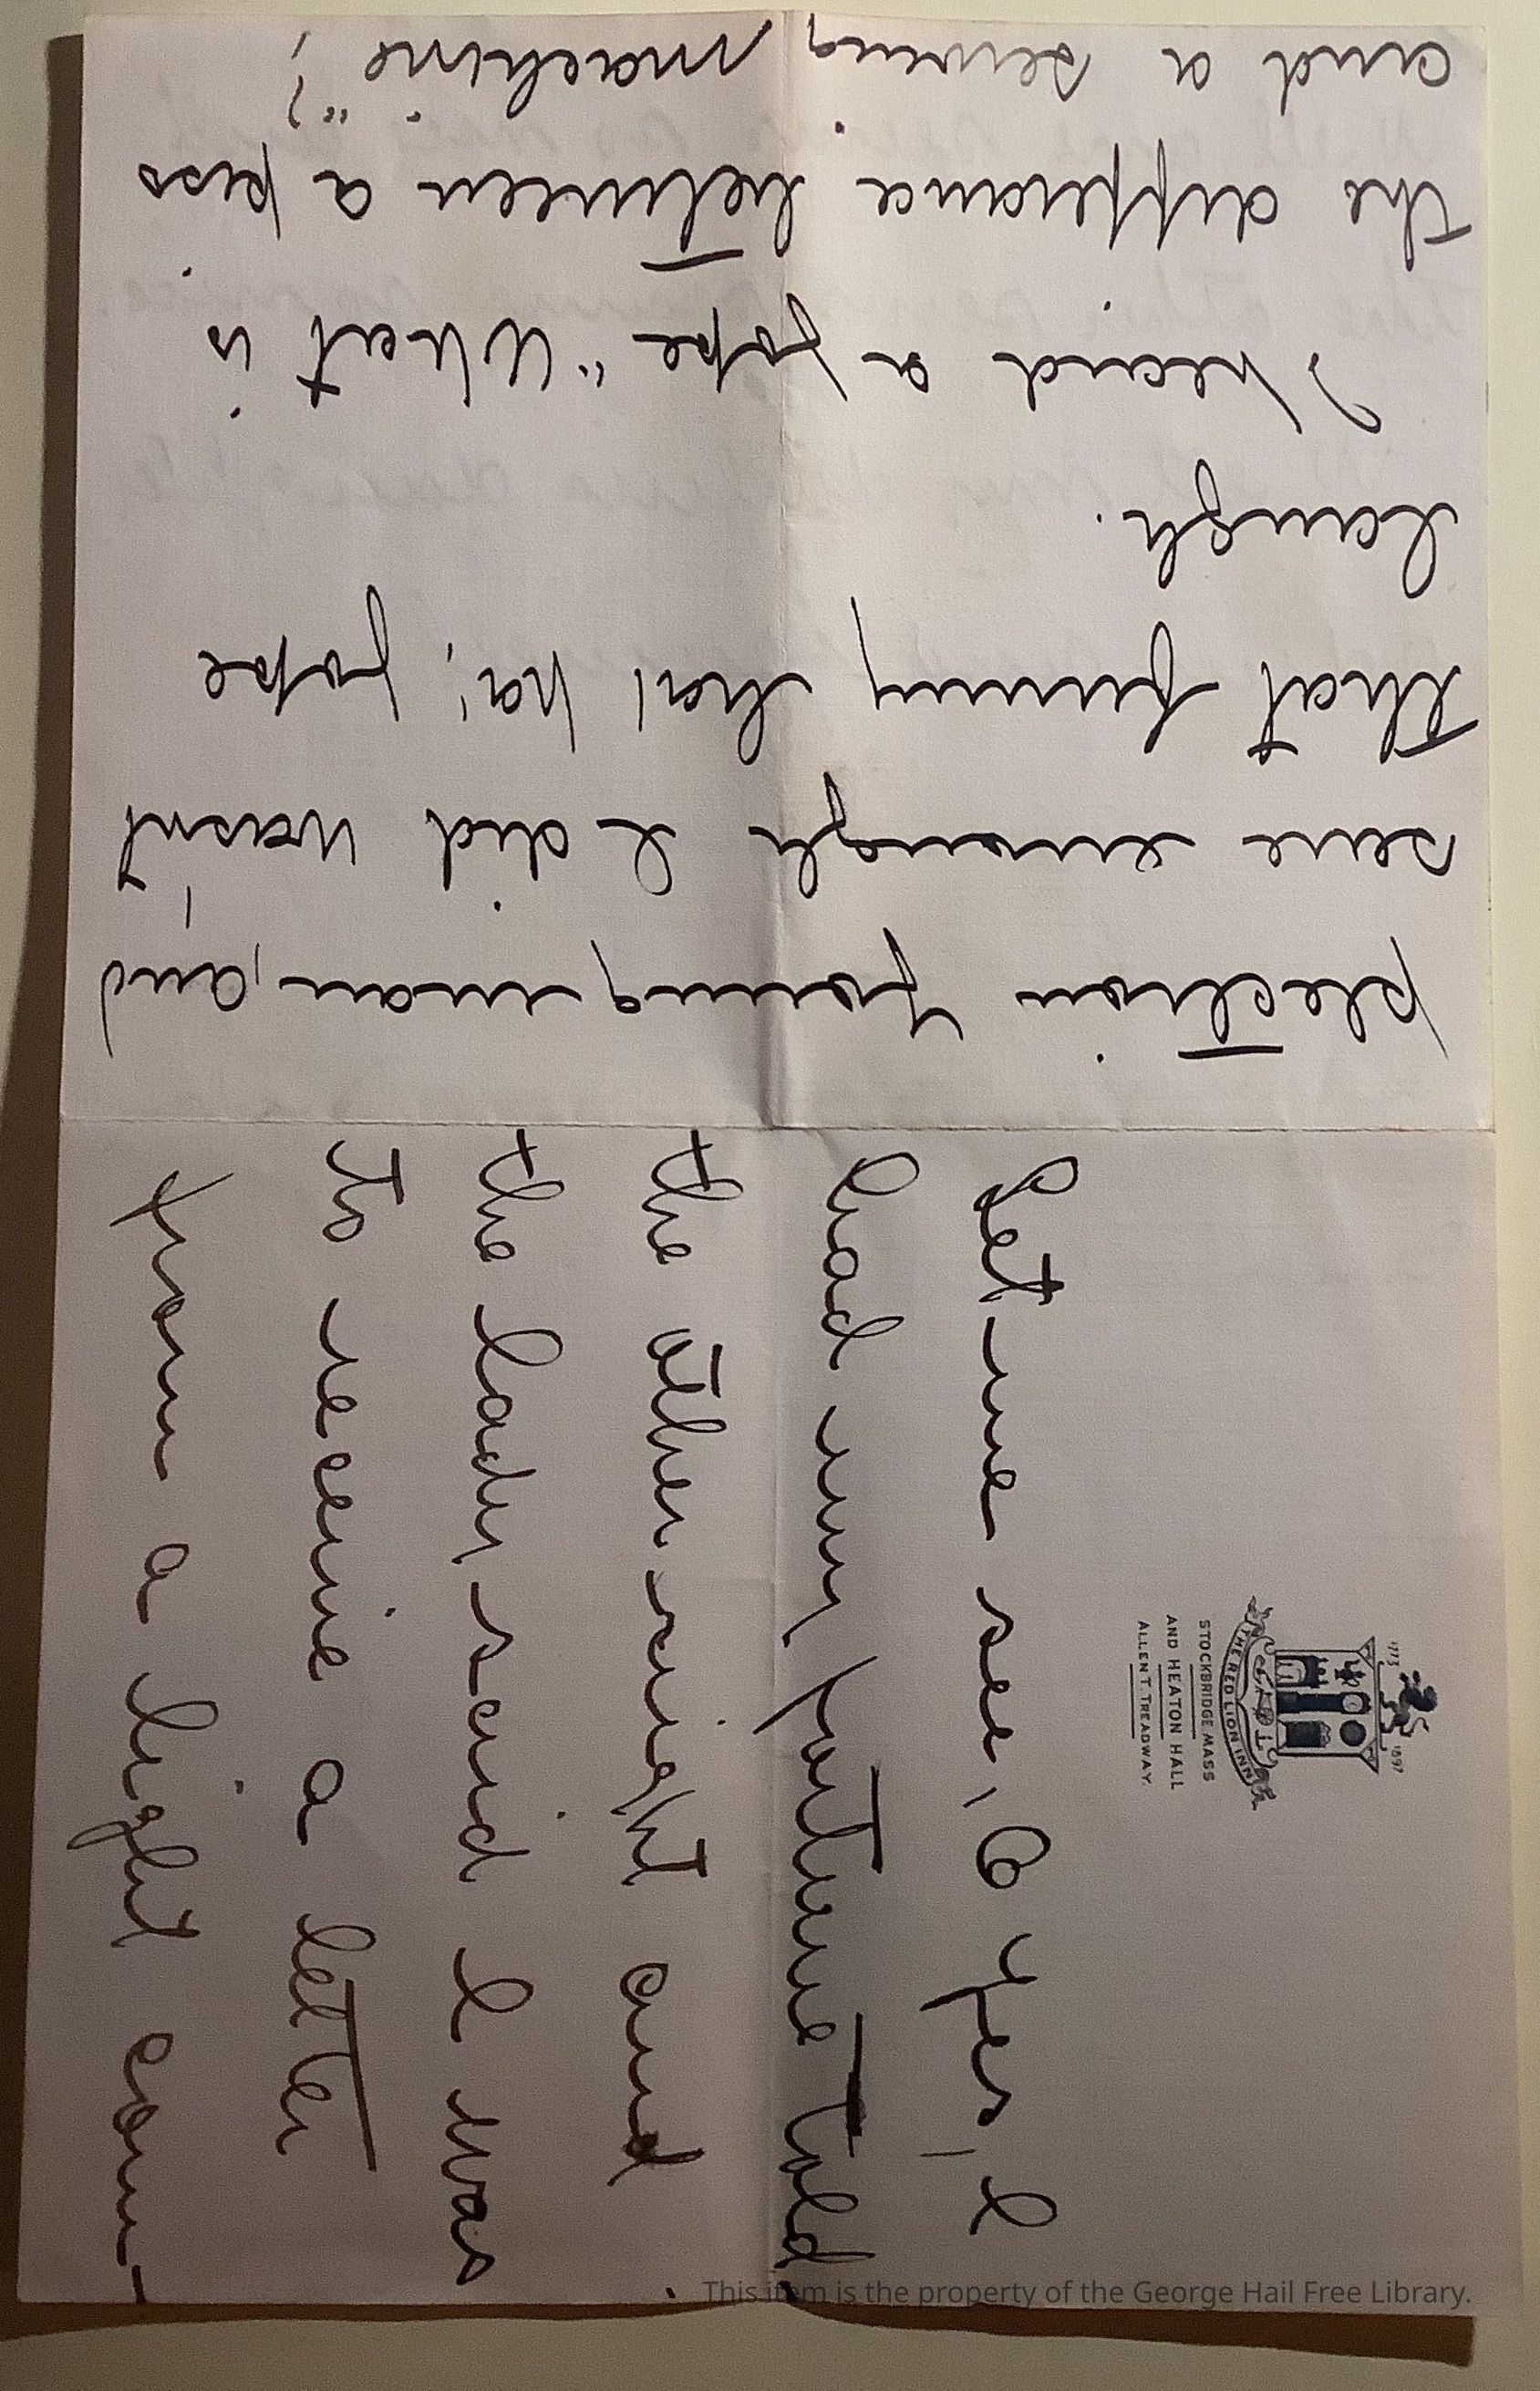 1773 1897
THE RED LION INN
STOCKBRIDGE MASS
AND HEATON HALL
ALLEN T. TREADWAY.
Let me see, O yes, I
had my fortune told
the other night and
the lady said I was
to receive a letter
from a light com-
plection young man, and
sure enough I did wasn't
that funny ha! ha! joke
laugh.
I heard a joke "What is
the differance between a kiss
and a sewing machine"?
This item is the property of the George Hail Free Library.